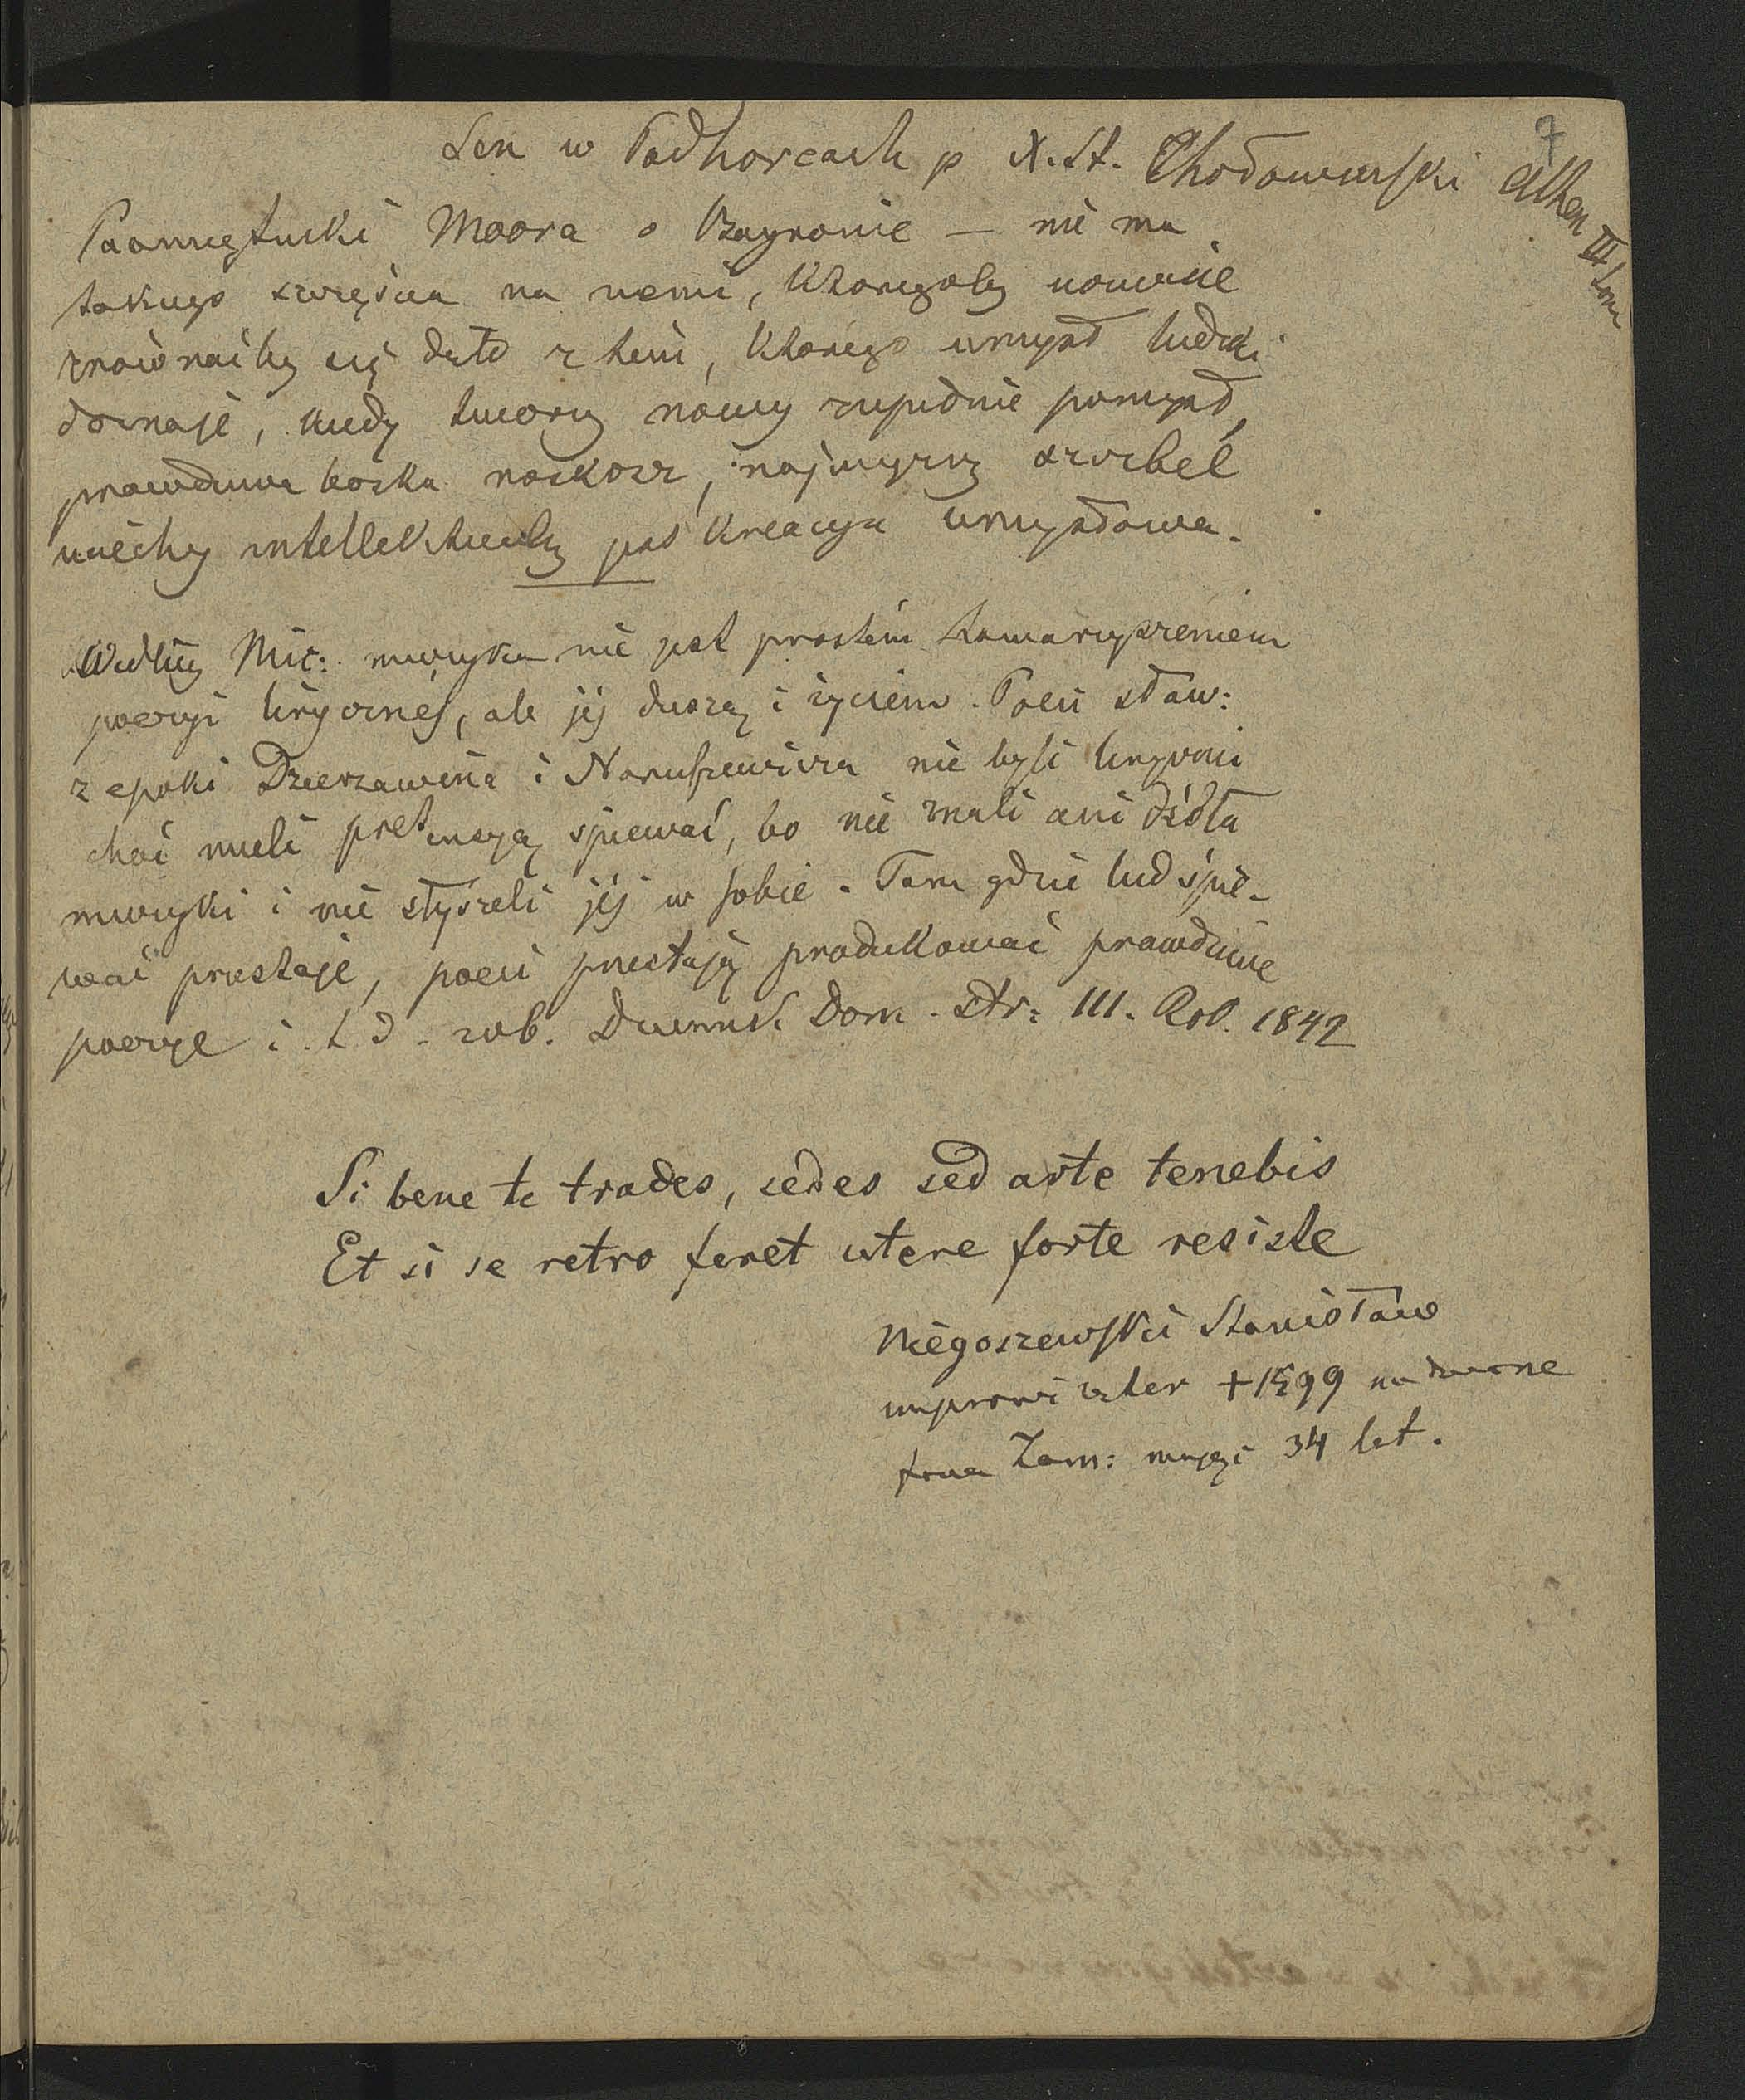 7
Sen w Podhorcach p X. St. Chołoniewski Athen
III tom
Pamiętniki Moora o Bayronie — nie ma
takiego szczęścia na ziemi, któregoby uczucie
zrównaćby się dało z tem, którego umysł ludzki
doznaje, kiedy tworzy nowy zupełnie pomysł,
prawdziwa boska roskosz, najwyższy szczebel
uciechy intellektualnej jest kreacya umysłowa.
Według Mic: muzyka nie jest prostém towarzyszeniem
poezyi lirycznéj, ale jéj duszą i życiem. Poeci sław:
z epoki Dzierzawina i Naruszewicza nie byli liryczni
choć mieli pretensyą śpiewać, bo nie znali ani źródła
muzyki i nie słyszeli jéj w sobie. Tam gdzie lud śpie-
wać przestaje, poeci przestają produkować prawdziwe
poezye i. t d. zob. Dziennik Dom. str: 111. Rok. 1842
Si bene te trades, sedes sed arte tenebis
Et si se retro feret utere forte resiste
Niegoszewski Stanisław
improwizator + 1599 na dworze
Jana Zam: mając 34 let.